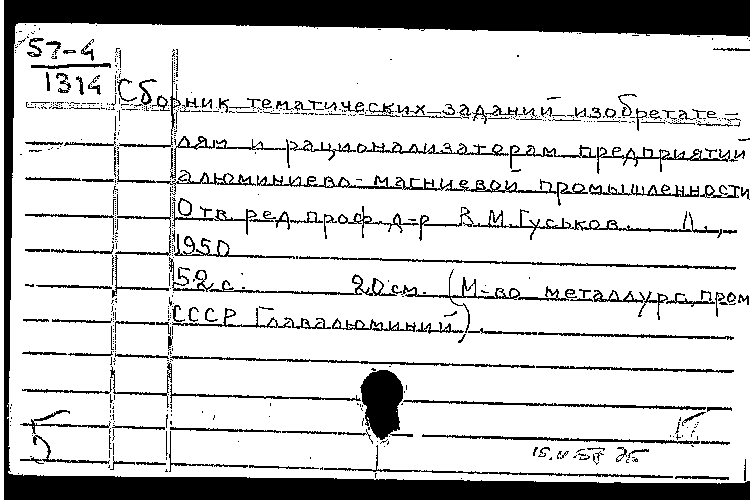 57-4
1314
Сборник тематических заданий изобретате-
лям и рационализаторам предприятий
алюминиево-магниевой промышленности
Отв. ред. проф. д-р В.М. Гуськов. Л.,
1950
52 с. 20 см. (М-во металлург. пром
СССР Главалюминий).
Б